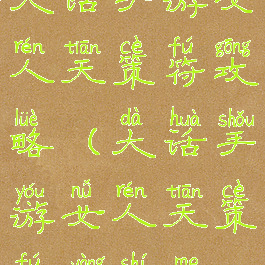 大话手游女
rén tiān cè fú gōng
人天策符攻
lüè dà huà shǒu
略（大话手
yóu nǚ rén tiān cè
游女人天策
fú yòng shí me